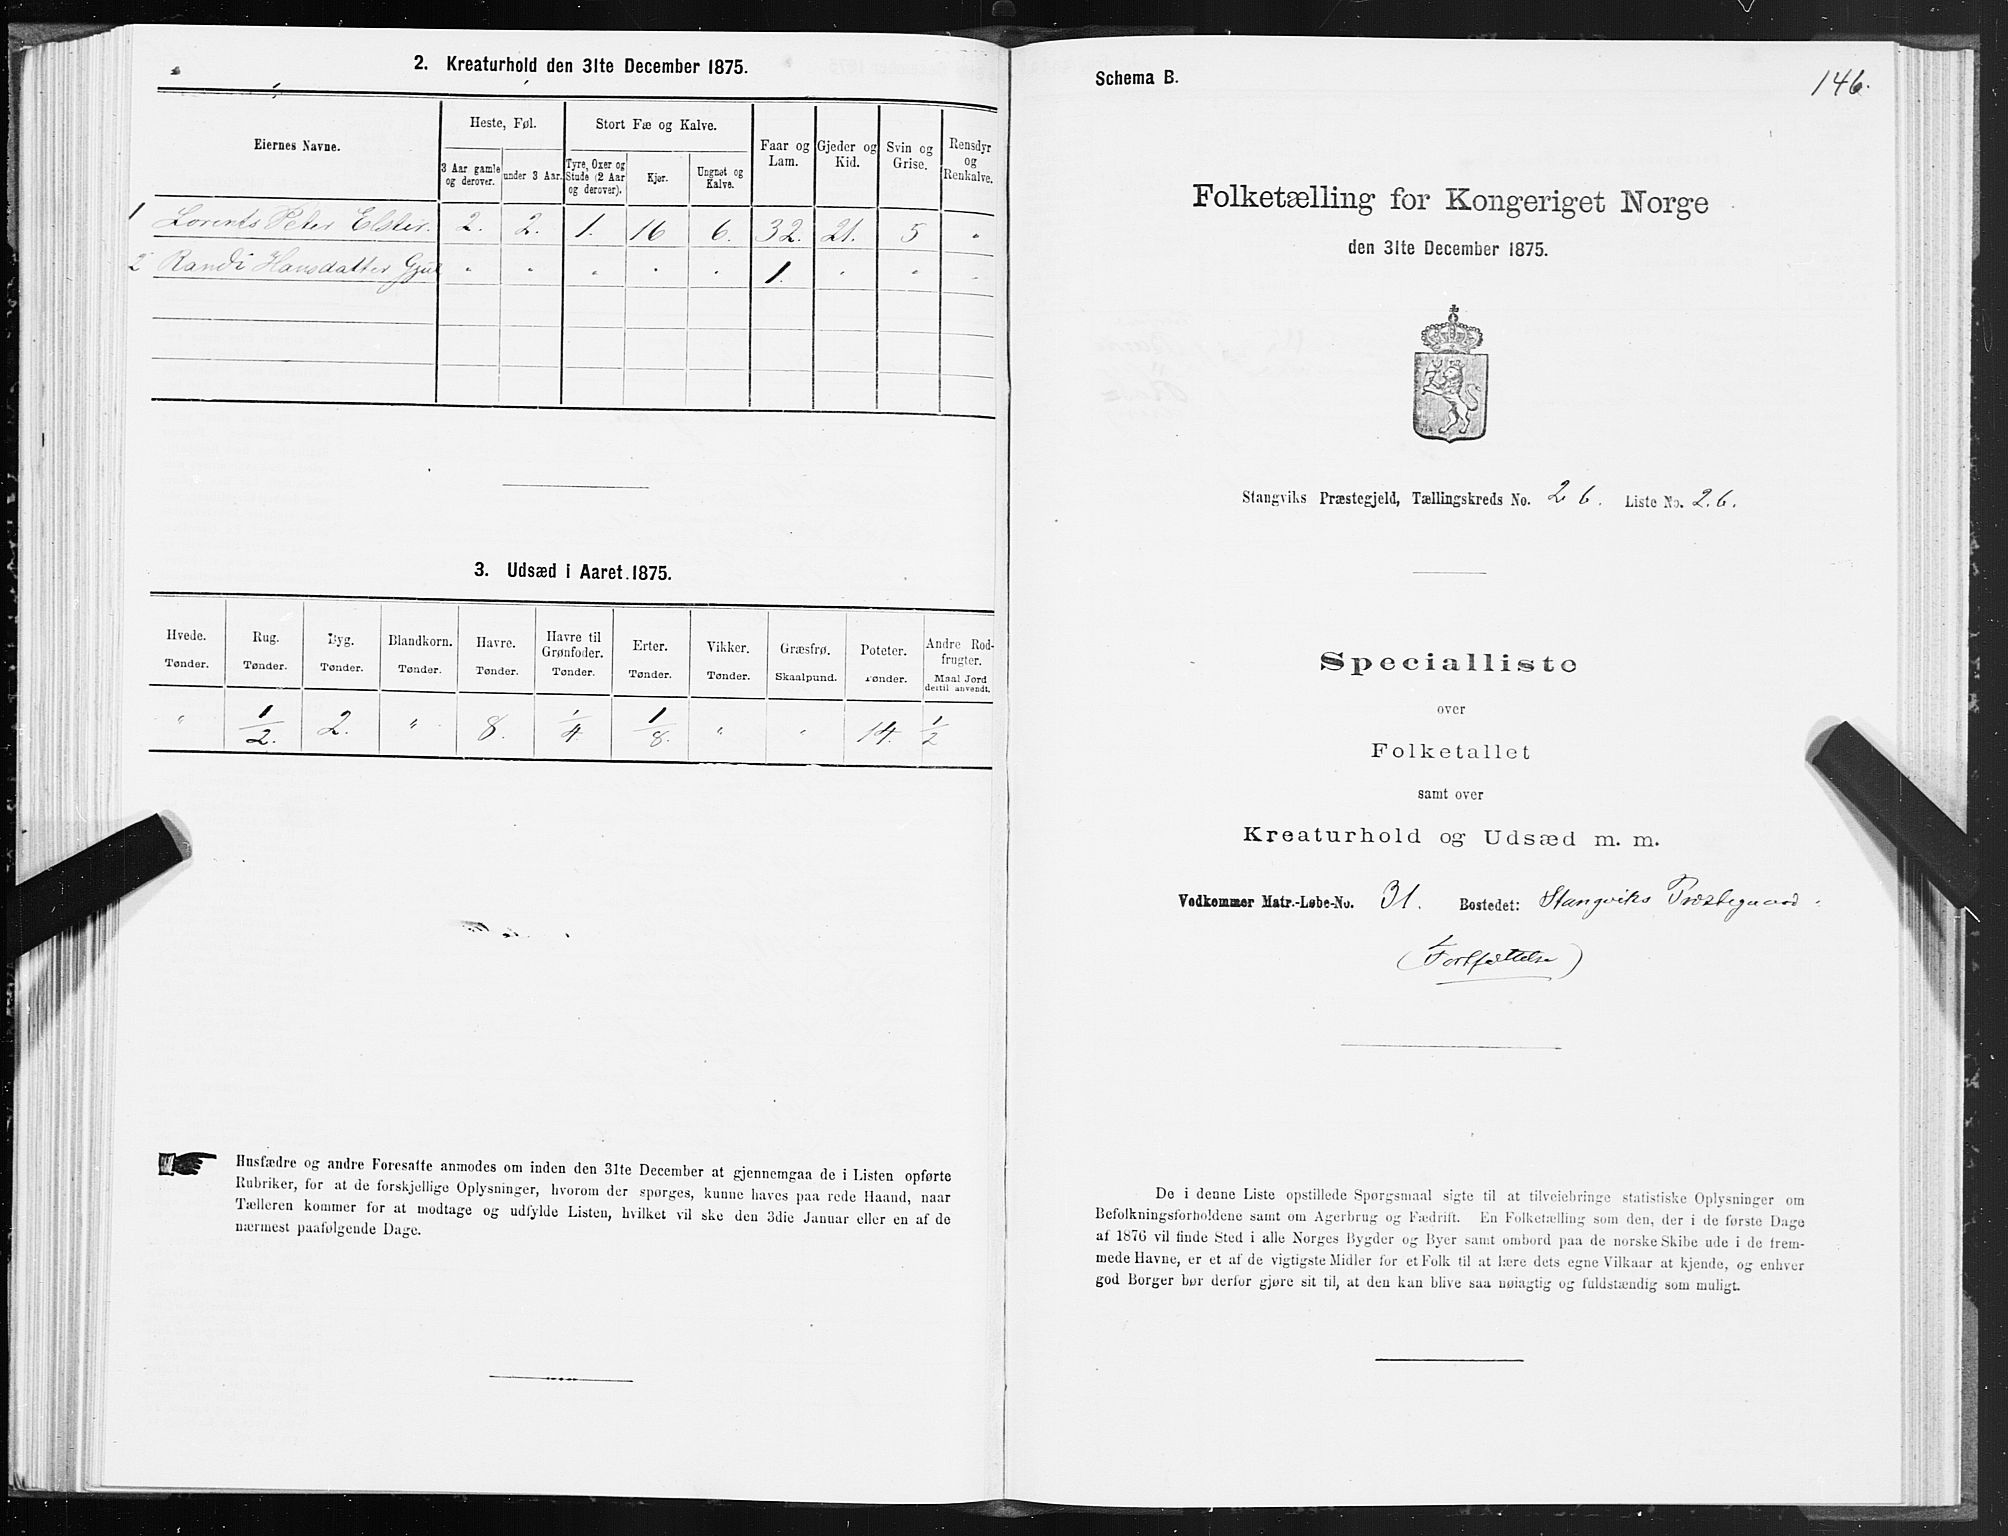 2. Kreaturhold den 31te December 1875.
Eiernes Navne.
Heste, Føl.
Stort Fæ og Kalve.
Faar og Lam.
Gjeder og Kid.
Svin og Grise.
Rensdyr og Renkalve.
3 Aar gamle og derover.
under 3 Aar.
Tyre, Oxer og Stude (2 Aar og derover).
Kjør.
Ungnøt og Kalve.
1 Lorents Peter Elster. 2. 2. 1. 16 6. 32. 21. 5 "
2 Randi Hansdatter " " " " " 1. " " "
3. Udsæd i Aaret 1875.
Hvede. Rug. Byg. Blandkorn. Havre. Havre til Grønfoder. Erter. Vikker. Græsfrø. Poteter. Andre Rodfrugter.
Tønder. Tønder. Tønder. Tønder. Tønder. Tønder. Tønder. Tønder. Skaalpund. Tønder. Maal Jord dertil anvendt.
" 1/2. 2. " 8. 1/4. 1/8. " " 14. 1/2
Husfædre og andre Foresatte anmodes om inden den 31te December at gjennemgaa de i Listen opførte
Rubriker, for at de forskjellige Oplysninger, hvorom der spørges, kunne haves paa rede Haand, naar
Tælleren kommer for at modtage og udfylde Listen, hvilket vil ske den 3die Januar eller en af de
nærmest paafølgende Dage.
Schema B.
146.
Folketælling for Kongeriget Norge
den 31te December 1875.
Stangviks Præstegjeld, Tællingskreds No. 26. Liste No. 26.
Specialliste
over
Folketallet
samt over
Kreaturhold og Udsæd m. m.
Vedkommer Matr.-Løbe-No. 31. Bostedet: Stangviks Præstegaard.
(Fortsættelse)
De i denne Liste opstillede Spørgsmaal sigte til at tilveiebringe statistiske Oplysninger om
Befolkningsforholdene samt om Agerbrug og Fædrift. En Folketælling som den, der i de første Dage
af 1876 vil finde Sted i alle Norges Bygder og Byer samt ombord paa de norske Skibe ude i de frem-
mede Havne, er et af de vigtigste Midler for et Folk til at lære dets egne Vilkaar at kjende, og enhver
god Borger bør derfor gjøre sit til, at den kan blive saa nøiagtig og fuldstændig som muligt.